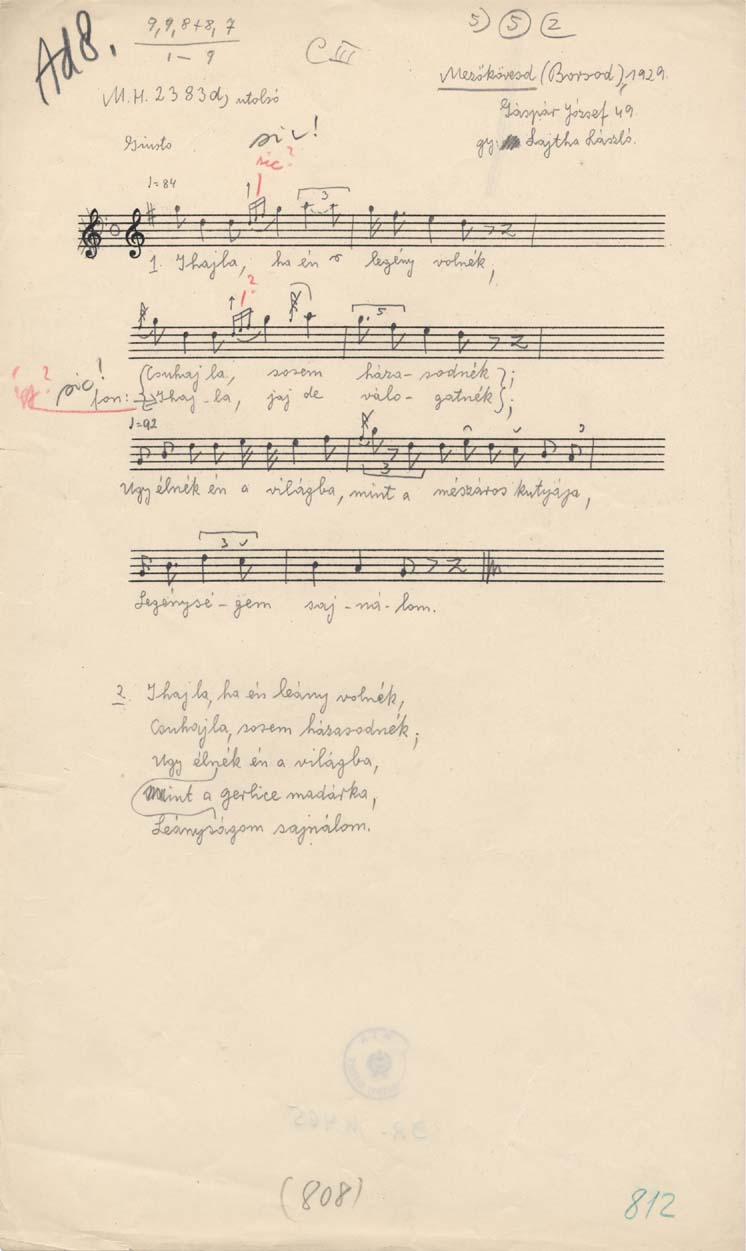 Ad 8.
9, 9, 8+8, 7
1 – 9
C III
5) 5 2
M.H. 2383d, utolsó
Mezőkövesd (Borsod), 1929.
Gáspár József 49.
gy. Lajtha László.
Giusto
sic!
sic?
♩=84
3
1. Ihajla, ha én legény volnék,
?
5
Csuhajla, sosem háza-sodnék;
sic!
fon: Ihaj-la, jaj de válo-gatnék;
♩=92
3
Ugy élnék én a világba, mint a mészáros kutyája,
3
Legénysé-gem saj-ná-lom.
2. Ihajla, ha én leány volnék,
Csuhajla, sosem házasodnék;
Ugy élnék én a világba,
Mint a gerlice madárka,
Leányságom sajnálom.
(808)
812